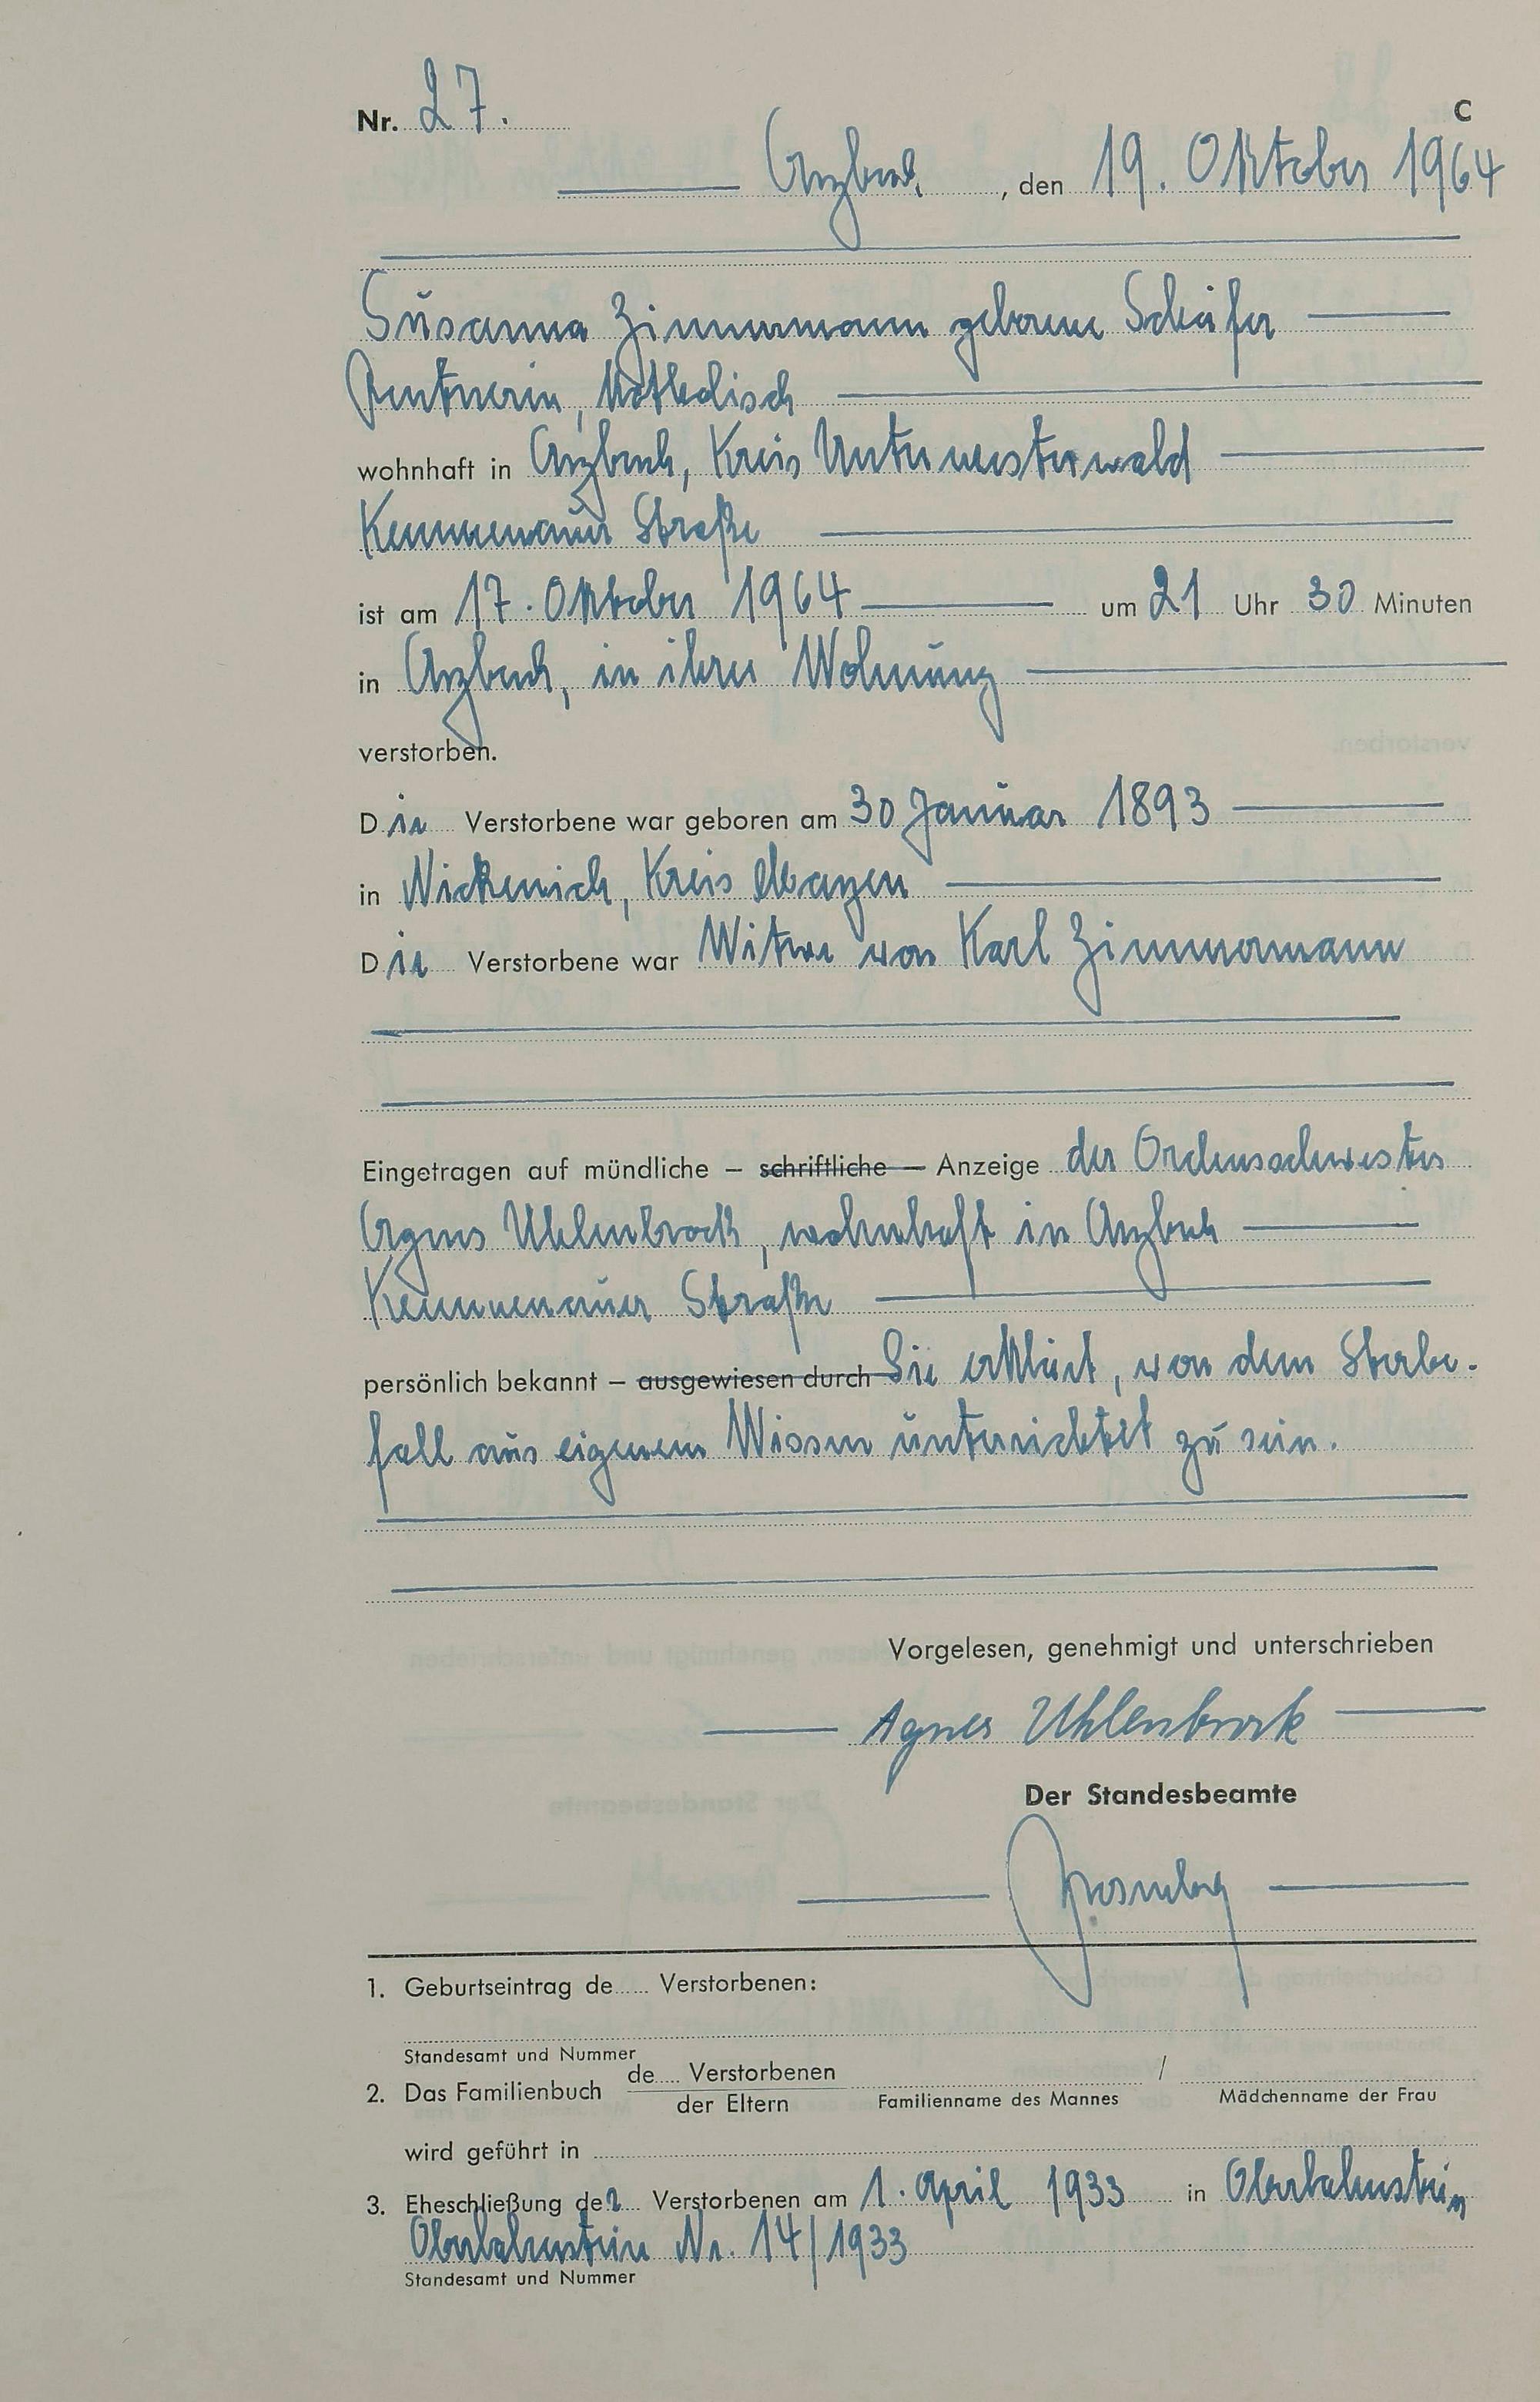 Nr. 27.
C
Arzbach, den 19. Oktober 1964
Susanna Zimmermann geborene Schäfer
Rentnerin, katholisch
wohnhaft in Arzbach, Kreis Unterwesterwald
Kemmenauer Straße
ist am 17. Oktober 1964 um 21 Uhr 30 Minuten
in Arzbach, in ihrer Wohnung
verstorben.
Die Verstorbene war geboren am 30 Januar 1893
in Nickenich, Kreis Mayen
Die Verstorbene war Witwe von Karl Zimmermann
Eingetragen auf mündliche – schriftliche – Anzeige der Ordensschwester
Agnes Uhlenbrock, wohnhaft in Arzbach
Kemmenauer Straße
persönlich bekannt – ausgewiesen durch Sie erklärt, von dem Sterbe-
fall aus eigenem Wissen unterrichtet zu sein.
Vorgelesen, genehmigt und unterschrieben
Agnes Uhlenbrock
Der Standesbeamte
1. Geburtseintrag de..... Verstorbenen:
Standesamt und Nummer
2. Das Familienbuch de.... Verstorbenen / der Eltern
Familienname des Mannes / Mädchenname der Frau
wird geführt in
3. Eheschließung der Verstorbenen am 1. April 1933 in Oberlahnstein
Oberlahnstein Nr. 14/1933
Standesamt und Nummer